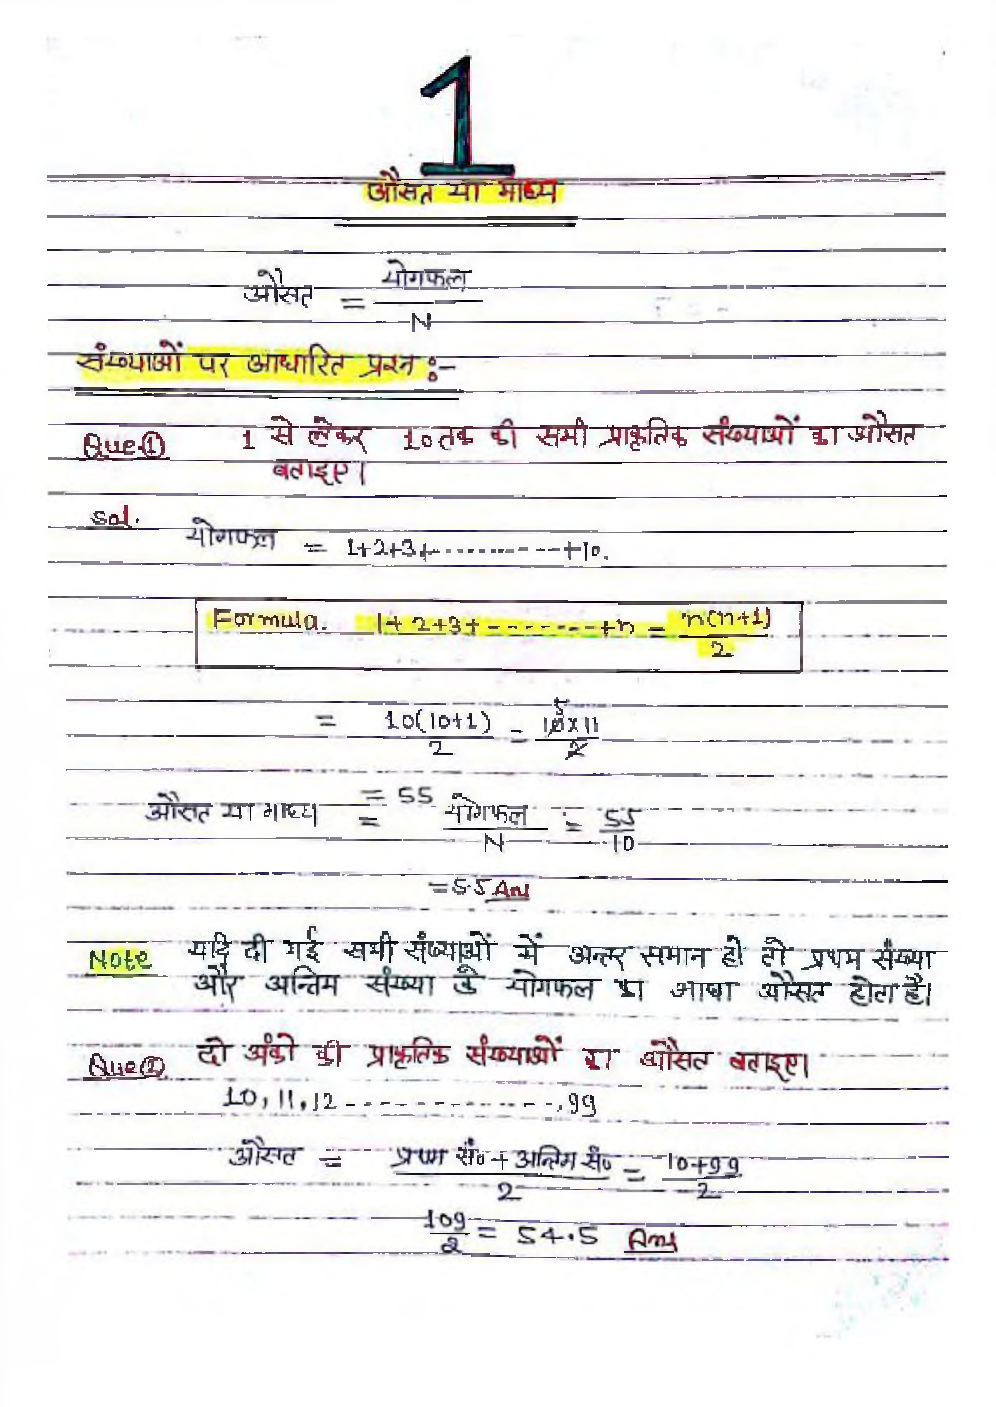 1
औसत या माध्य
औसत = योगफल / N
संख्याओं पर आधारित प्रश्न :-
Que① 1 से लेकर 10 तक की सभी प्राकृतिक संख्याओं का औसत
बताइए।
Sol. योगफल = 1+2+3+-----------+10.
Formula. 1+2+3+--------+n = n(n+1) / 2
= 10(10+1) / 2 = 10×11 / 2 5
= 55
औसत या माध्य = योगफल / N = 55 / 10
= 5.5 Ans
Note यदि दी गई सभी संख्याओं में अन्तर समान हो तो प्रथम संख्या
और अन्तिम संख्या के योगफल का आधा औसत होता है।
Que② दो अंको की प्राकृतिक संख्याओं का औसत बताइए।
10, 11, 12 ---------------, 99
औसत = प्रथम सं० + अन्तिम सं० / 2 = 10+99 / 2
109 / 2 = 54.5 Ans